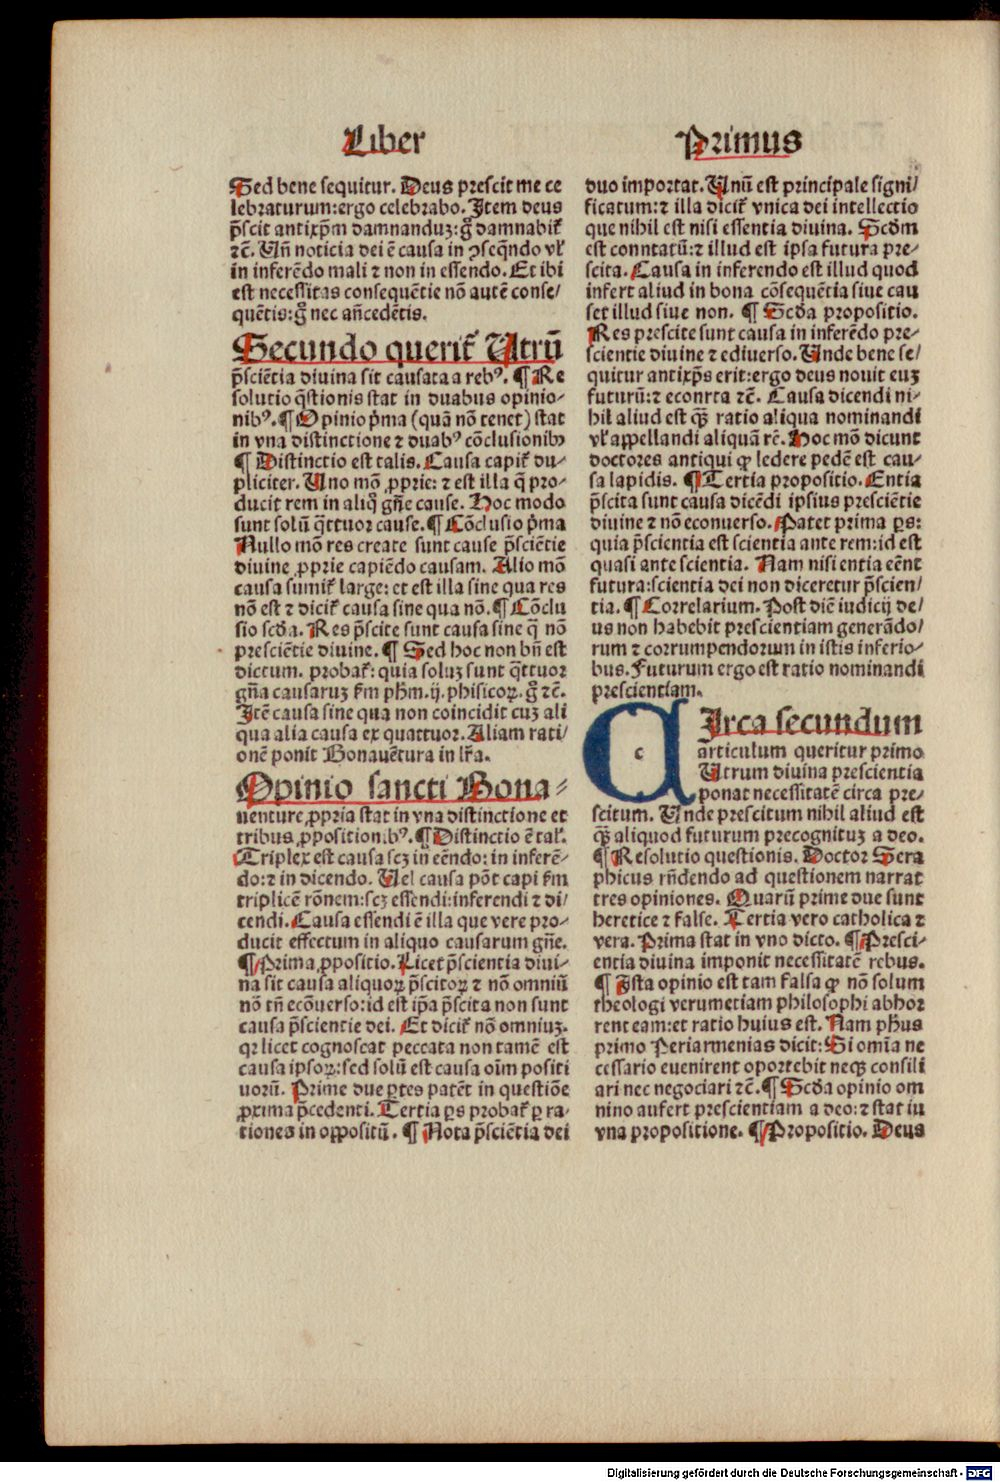 Liber
Primus
Sed bene sequitur. Deus prescit me ce
lebraturum:ergo celebrabo. Item deus
p̃scit antixp̃m damnanduꝫ:g̃ damnabit᷑
ꝛc̃. Vñ noticia dei ē causa in ꝯseq̃ndo vl̓
in inferēdo mali ⁊ non in essendo. Et ibi
est necessitas consequētie nō autē conse/
quētis:g̃ nec añcedētis.
Secundo querit᷑ Vtrū
p̃sciētia diuina sit causata a rebꝰ. ¶ Re
solutio q̃stionis stat in duabus opinio-
nibꝰ. ¶ Opinio p̃ma (quā nō tenet) stat
in vna distinctione ⁊ duabꝰ cōclusionibꝫ
¶ Distinctio est talis. Causa capit᷑ du/
pliciter. Uno mō ꝓprie: ⁊ est illa q̃ pro-
ducit rem in aliq̊ gñe cause. Hoc modo
sunt solū q̃ttuor cause. ¶ Cōclusio p̃ma
Nullo mō res create sunt cause p̃sciētie
diuine ꝓprie capiēdo causam. Alio mō
causa sumit᷑ large: et est illa sine qua res
nō est ⁊ dicit᷑ causa sine qua nō. ¶ Cōclu
sio scd̓a. Res p̃scite sunt causa sine q̃ nō
presciētie diuine. ¶ Sed hoc non bñ est
dictum. probat᷑: quia soluꝫ sunt q̃ttuor
gña causaruꝫ fm̄ ph̓m. ij. phisicoꝝ. g̃ ꝛc̃.
Itē causa sine qua non coincidit cuꝫ ali
qua alia causa ex quattuor. Aliam rati/
onē ponit Bonauētura in lr̃a.
Opinio sancti Bona-
uenture ꝓpria stat in vna distinctione et
tribus ꝓpositionibꝰ. ¶ Distinctio ē tal̓.
Triplex est causa scꝫ in eēndo: in inferē-
do: ⁊ in dicendo. Uel causa pōt capi fm̄
triplicē rōnem:scꝫ essendi:inferendi ⁊ di/
cendi. Causa essendi ē illa que vere pro-
ducit effectum in aliquo causarum gñe.
¶ Prima ꝓpositio. Licet p̃scientia diui-
na sit causa aliquoꝝ p̃scitoꝝ ⁊ nō omniū
nō tñ ecōuerso:id est ip̃a p̃scita non sunt
causa p̃scientie dei. Et dicit᷑ nō omniuꝫ.
qꝛ licet cognoscat peccata non tamē est
causa ipsoꝝ:sed solū est causa oīm positi
uorū. Prime due ꝑtes patēt in questiōe
ꝓxima p̃cedenti. Tertia ꝑs probat᷑ ꝑ ra-
tiones in oppositū. ¶ Nota p̃sciētia dei
duo importat. Unū est principale signi/
ficatum:⁊ illa dicit᷑ vnica dei intellectio
que nihil est nisi essentia diuina. Scd̓m
est connotatū:⁊ illud est ipsa futura pre-
scita. Causa in inferendo est illud quod
infert aliud in bona cōsequētia siue cau
set illud siue non. ¶ Scd̓a propositio.
Res prescite sunt causa in inferēdo pre-
scientie diuine ⁊ ediuerso. Unde bene se/
quitur antixp̃s erit:ergo deus nouit euꝫ
futurū: ⁊ econtra ꝛc̃. Causa dicendi ni-
hil aliud est qꝫ̃ ratio aliqua nominandi
vl̓ appellandi aliquā rē. Hoc mō dicunt
doctores antiqui ꝙ ledere pedē est cau-
sa lapidis. ¶ Tertia propositio. Entia
p̃scita sunt causa dicēdi ipsius presciētie
diuine ⁊ nō econuerso. Patet prima ꝑs:
quia p̃scientia est scientia ante rem:id est
quasi ante scientia. Nam nisi entia eēnt
futura:scientia dei non diceretur p̃scien/
tia. ¶ Correlarium. Post diē iudicij de/
us non habebit prescientiam generādo/
rum ⁊ corrumpendorum in istis inferio-
bus. Futurum ergo est ratio nominandi
prescientiam.
c
CIrca secundum
articulum queritur primo
Vtrum diuina prescientia
ponat necessitatē circa pre/
scitum. Unde prescitum nihil aliud est
qꝫ̃ aliquod futurum precognituꝫ a deo.
¶ Resolutio questionis. Doctor Sera
phicus rñdendo ad questionem narrat
tres opiniones. Quarū prime due sunt
heretice ⁊ false. Tertia vero catholica ⁊
vera. Prima stat in vno dicto. ¶ Presci/
entia diuina imponit necessitatē rebus.
¶ Ista opinio est tam falsa ꝙ nō solum
theologi verumetiam philosophi abhor
rent eam:et ratio huius est. Nam ph̓us
primo Periarmenias dicit: Si omīa ne
cessario euenirent oportebit neqꝫ consili
ari nec negociari ꝛc̃. ¶ Scd̓a opinio om
nino aufert prescientiam a deo: ⁊ stat iu
vna propositione. ¶ Propositio. Deus
Digitalisierung gefördert durch die Deutsche Forschungsgemeinschaft - DFG